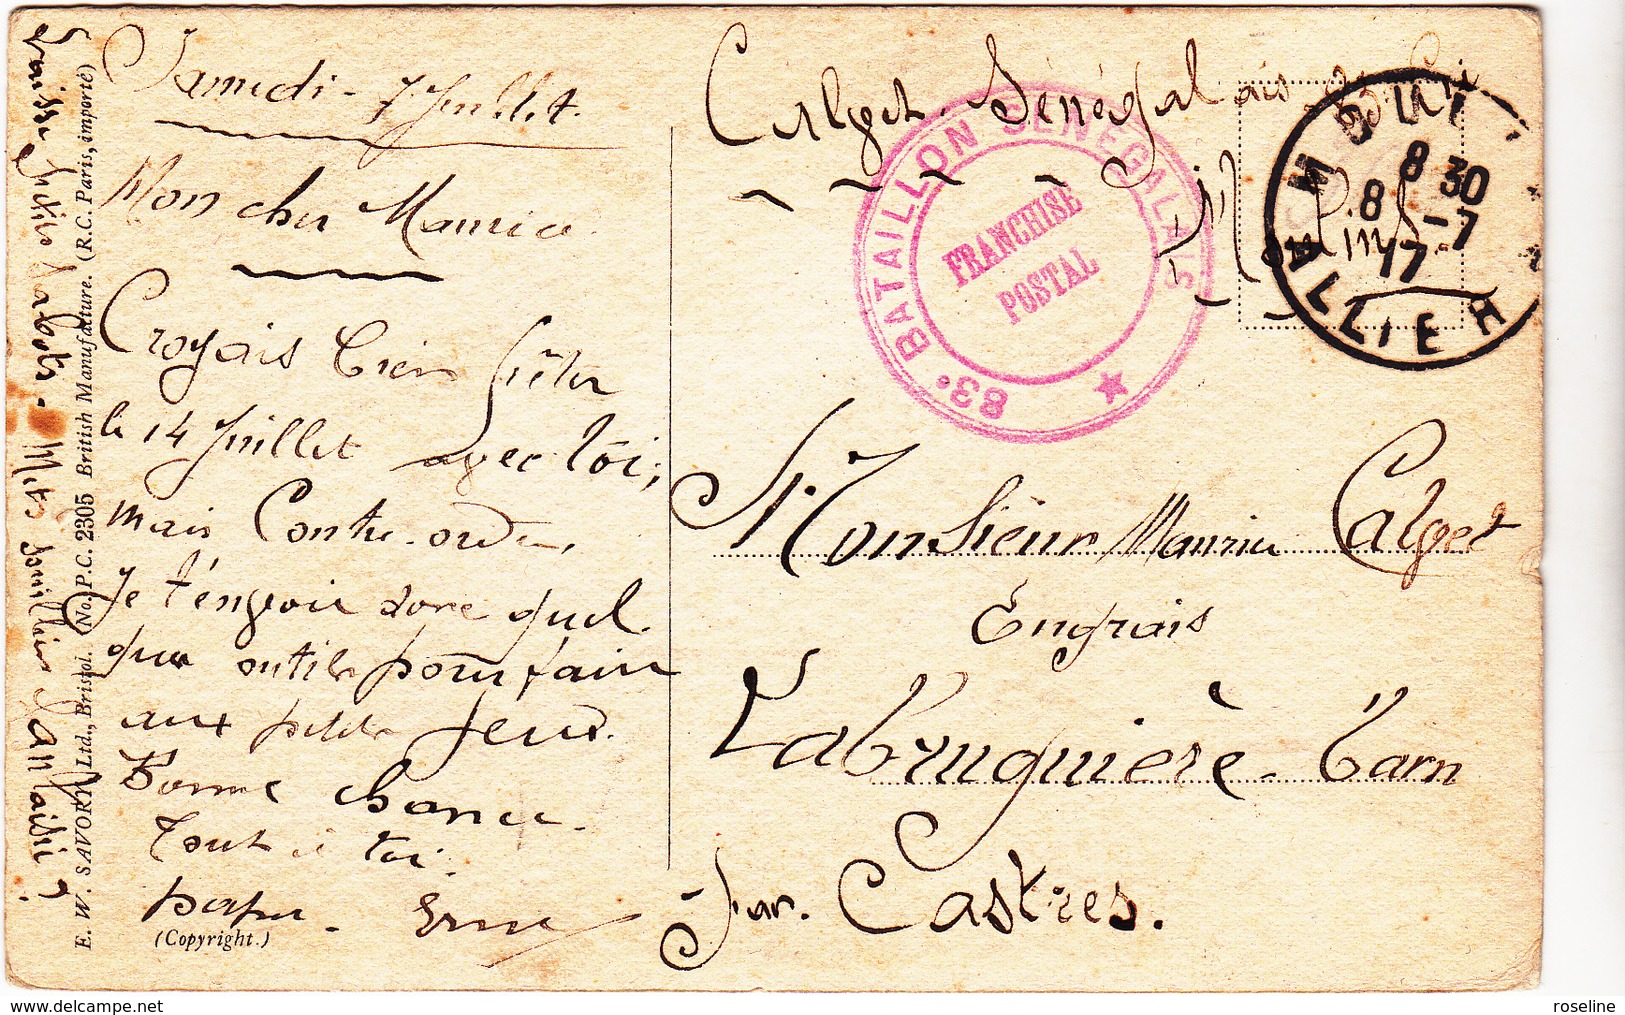 Samedi - 7 Juillet.
Mon cher Maurice
Croyais bien fêter
le 14 Juillet avec toi,
mais Contre-ordre,
Je t'envoie donc quel
que outils pour faire
aux petits jeux.
Bonne chance.
Tout à toi
papa.
(Copyright.)
E. W. SAVORY, Ltd., Bristol. (No. P.C. 2305 British Manufacture. (R.C. Paris, importé)
Calget. Sénégalais
83e BATAILLON SÉNÉGALAIS
FRANCHISE
POSTAL
8 30
8 -7
17
ALLIER
Monsieur Maurice Calget
Engrais
Labruguière - Tarn
par. Castres.
www.delcampe.net
roseline